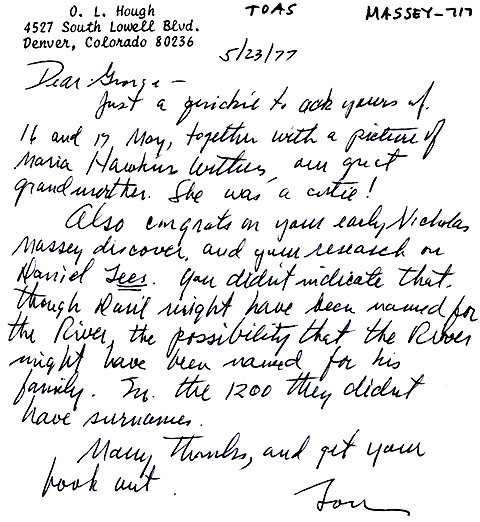 O. L. Hough
4527 South Lowell Blvd.
Denver, Colorado 80236
TOAS
MASSEY-717
5/23/77
Dear George —
Just a quickie to ack yours of
16 and 17 May, together with a picture of
Maria Hawkins Withers, our great
grandmother. She was a cutie!
Also congrats on your early Nicholas
Massey discover, and your research on
Daniel Tees. You didn't indicate that,
though Danil might have been named for
the River, the possibility that the River
might have been named for his
family. In the 1200 they didnt
have surnames.
Many thanks, and get your
book out.
Tom